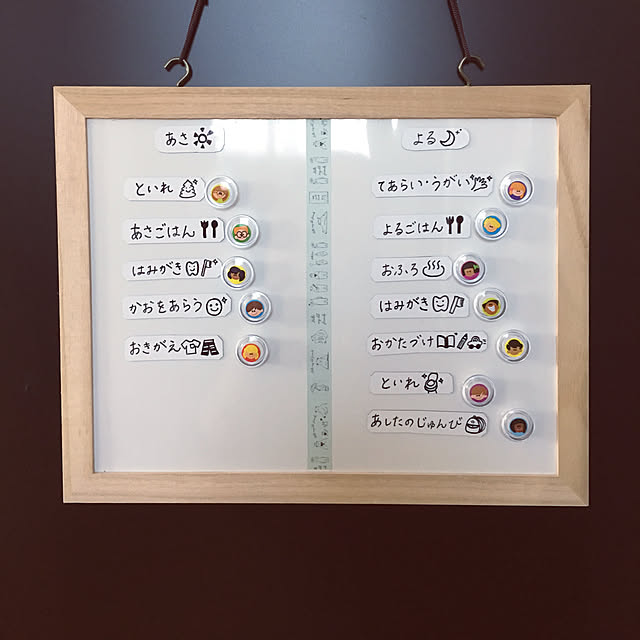 あさ
といれ
あさごはん
はみがき
かおをあらう
おきがえ
よる
てあらい・うがい
よるごはん
おふろ
はみがき
おかたづけ
といれ
あしたのじゅんび